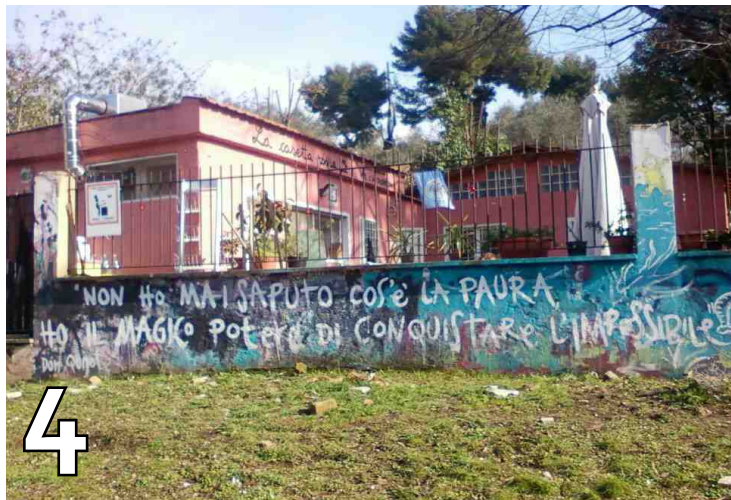 La casetta rossa
"NON HO MAI SAPUTO COS'È LA PAURA
HO IL MAGICO POTERE DI CONQUISTARE L'IMPOSSIBILE"
4